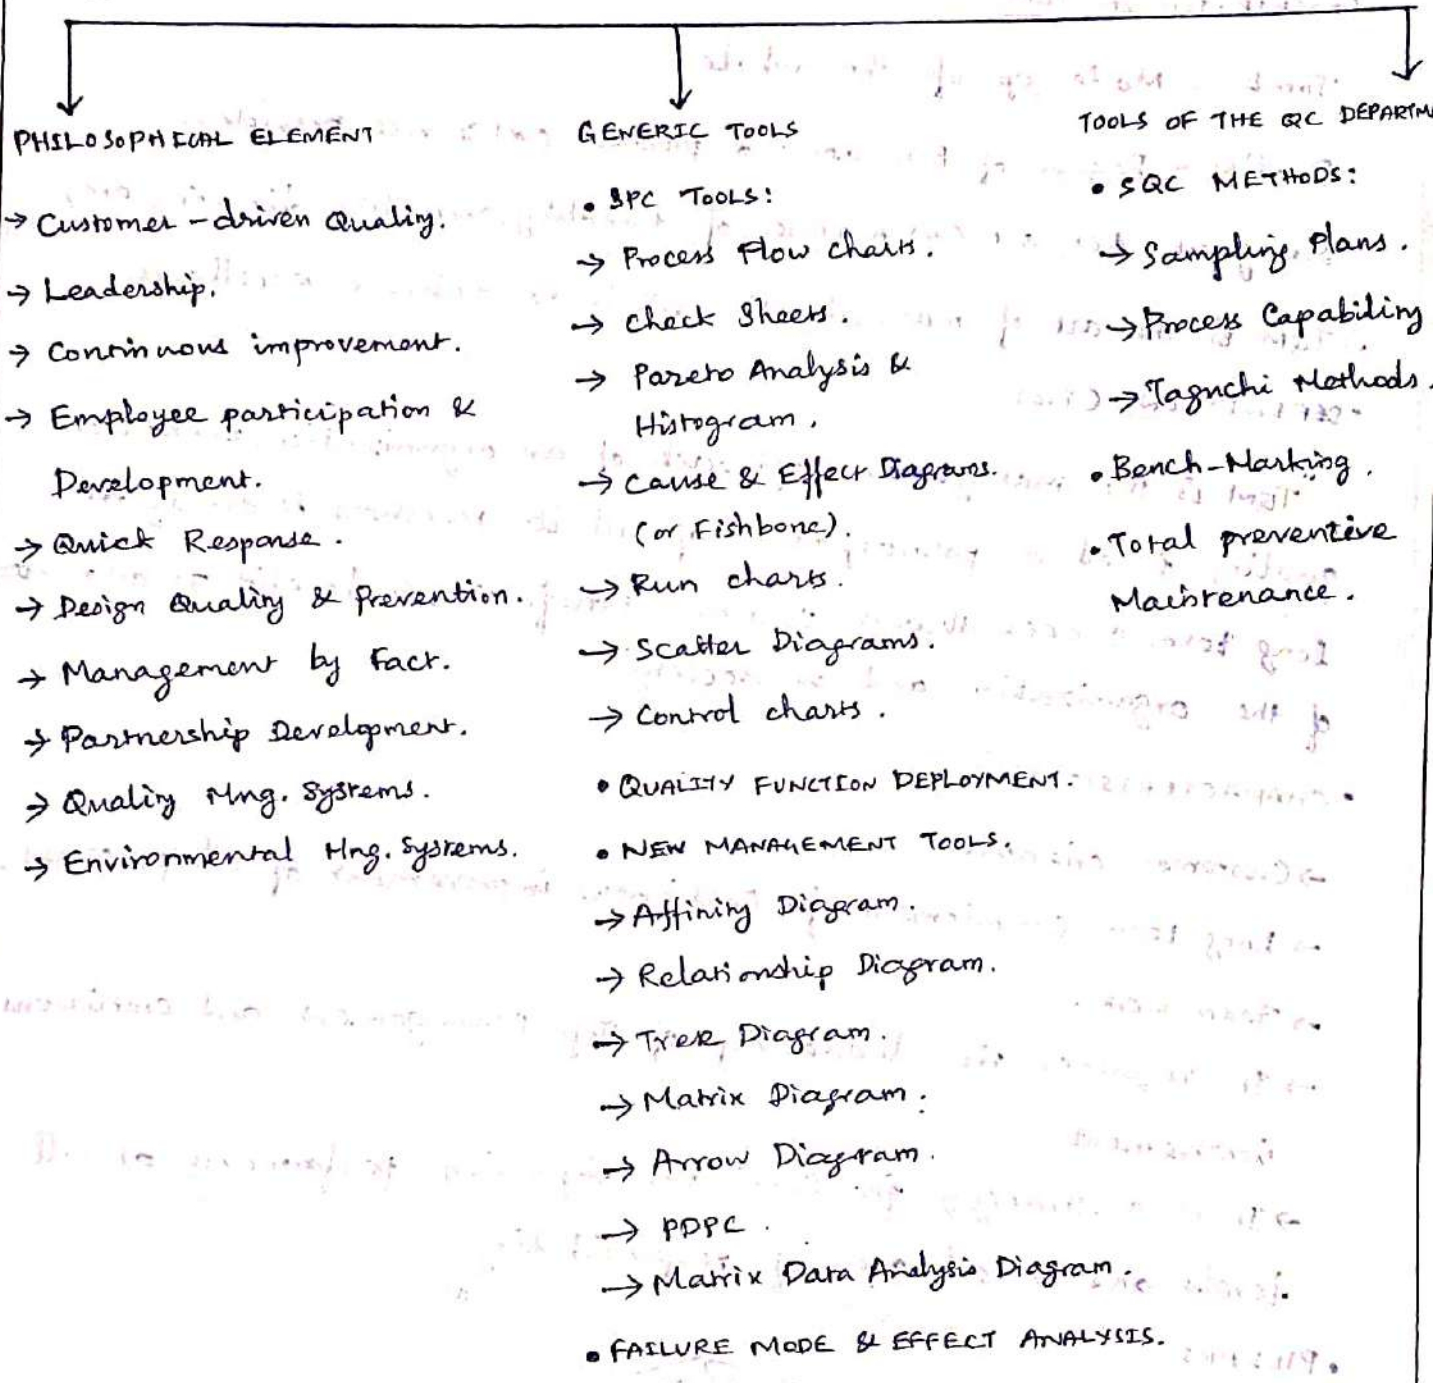 PHILOSOPHICAL ELEMENT
→ Customer-driven Quality.
→ Leadership.
→ Continuous improvement.
→ Employee participation &
Development.
→ Quick Response.
→ Design Quality & Prevention.
→ Management by Fact.
→ Partnership Development.
→ Quality Mng. Systems.
→ Environmental Mng. Systems.
GENERIC TOOLS
• SPC TOOLS:
→ Process Flow charts.
→ Check Sheets.
→ Pareto Analysis &
Histogram.
→ Cause & Effect Diagrams.
(or Fishbone).
→ Run charts.
→ Scatter Diagrams.
→ Control charts.
• QUALITY FUNCTION DEPLOYMENT.
• NEW MANAGEMENT TOOLS.
→ Affinity Diagram.
→ Relationship Diagram.
→ Tree Diagram.
→ Matrix Diagram.
→ Arrow Diagram.
→ PDPC.
→ Matrix Data Analysis Diagram.
• FAILURE MODE & EFFECT ANALYSIS.
TOOLS OF THE QC DEPARTM
• SQC METHODS:
→ Sampling Plans.
→ Process Capability
→ Taguchi Methods.
• Bench-Marking.
• Total preventive
Maintenance.